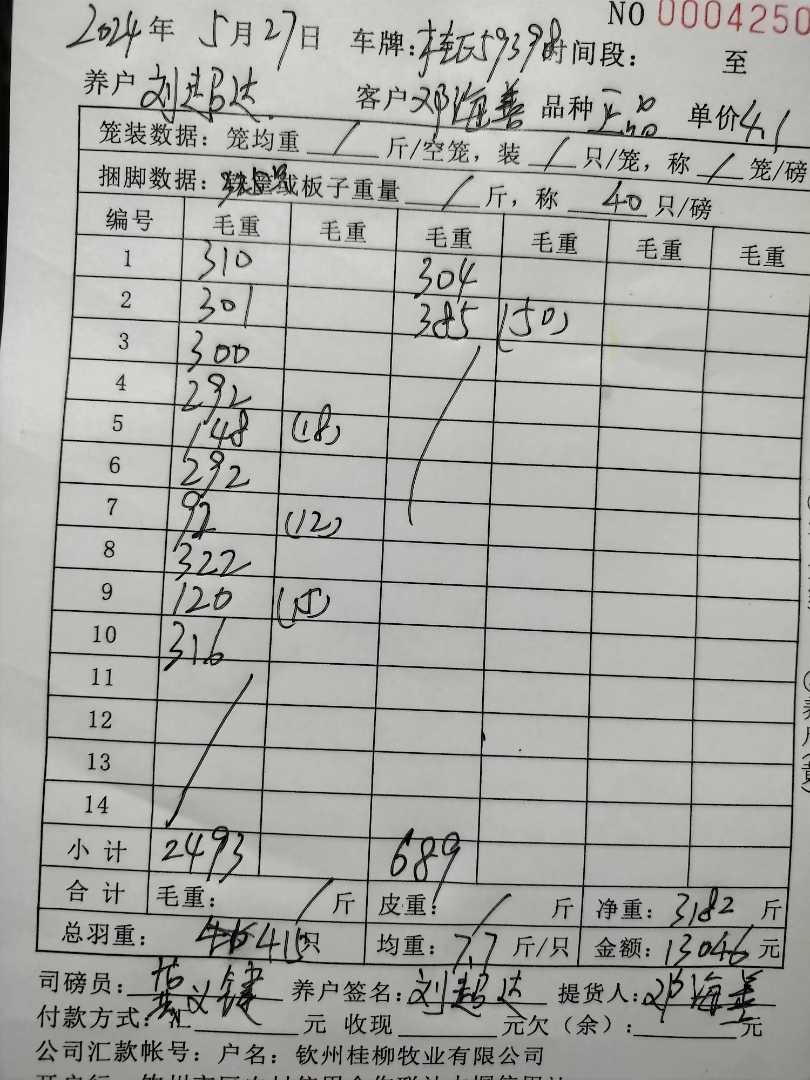 NO 0004250
2024年 5月27日 车牌:桂N59398 时间段: 至
养户 刘超达 客户 邓海善 品种 正品 单价 4.1
笼装数据: 笼均重 / 斤/空笼, 装 / 只/笼, 称 / 笼/磅
捆脚数据: 或板子重量 / 斤, 称 40 只/磅
编号 毛重 毛重 毛重 毛重 毛重 毛重
1 310 304
2 301 385 (50)
3 300 /
4 292
5 148 (18)
6 292
7 92 (12)
8 322
9 120 (15)
10 316
11 /
12
13
14
小计 2493 689
合计 毛重: / 斤 皮重: / 斤 净重: 3182 斤
总羽重: 415只 均重: 7.7 斤/只 金额: 13046 元
司磅员: 黄义健 养户签名: 刘超达 提货人: 邓海善
付款方式: 汇 元 收现 元欠(余): 元
公司汇款帐号: 户名: 钦州桂柳牧业有限公司